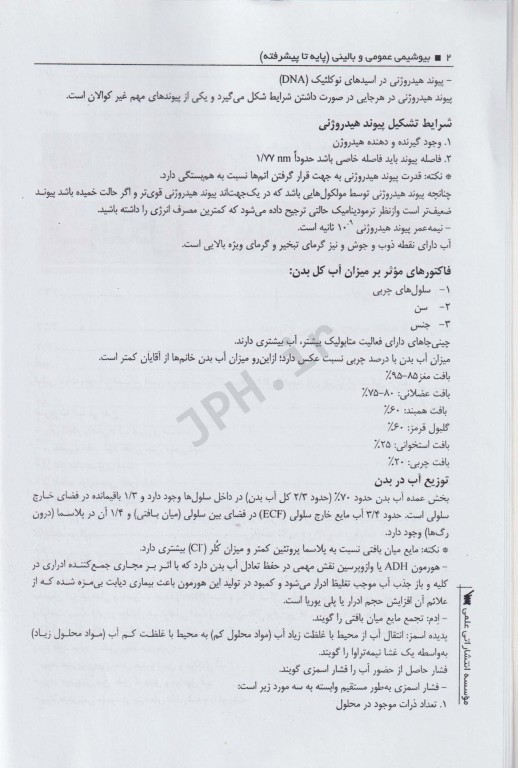 ۲ ■ بیوشیمی عمومی و بالینی (پایه تا پیشرفته)
- پیوند هیدروژنی در اسیدهای نوکلئیک (DNA)
پیوند هیدروژنی در هرجایی در صورت داشتن شرایط شکل می‌گیرد و یکی از پیوندهای مهم غیر کوالان است.
شرایط تشکیل پیوند هیدروژنی
۱. وجود گیرنده و دهنده هیدروژن
۲. فاصله پیوند باید فاصله خاصی باشد حدوداً ۱/۷۷ nm
* نکته: قدرت پیوند هیدروژنی به جهت قرار گرفتن اتم‌ها نسبت به هم‌بستگی دارد.
چنانچه پیوند هیدروژنی توسط مولکول‌هایی باشد که در یک‌جهت‌اند پیوند هیدروژنی قوی‌تر و اگر حالت خمیده باشد پیوند
ضعیف‌تر است وازنظر ترمودینامیک حالتی ترجیح داده می‌شود که کمترین مصرف انرژی را داشته باشید.
- نیمه‌عمر پیوند هیدروژنی ۱۰⁻⁹ ثانیه است.
آب دارای نقطه ذوب و جوش و نیز گرمای تبخیر و گرمای ویژه بالایی است.
فاکتورهای مؤثر بر میزان آب کل بدن:
۱- سلول‌های چربی
۲- سن
۳- جنس
چینی‌جاهای دارای فعالیت متابولیک بیشتر، آب بیشتری دارند.
میزان آب بدن با درصد چربی نسبت عکس دارد؛ ازاین‌رو میزان آب بدن خانم‌ها از آقایان کمتر است.
بافت مغز۸۵–۹۵٪
بافت عضلانی: ۸۰–۷۵٪
بافت همبند: ۶۰٪
گلبول قرمز: ۶۰٪
بافت استخوانی: ۲۵٪
بافت چربی: ۲۰٪
توزیع آب در بدن
بخش عمده آب بدن حدود ۷۰٪ (حدود ۲/۳ کل آب بدن) در داخل سلول‌ها وجود دارد و ۱/۳ باقیمانده در فضای خارج
سلولی است. حدود ۳/۴ آب مایع خارج سلولی (ECF) در فضای بین سلولی (میان بافتی) و ۱/۴ آن در پلاسما (درون
رگ‌ها) وجود دارد.
* نکته: مایع میان بافتی نسبت به پلاسما پروتئین کمتر و میزان کُلر (Cl⁻) بیشتری دارد.
- هورمون ADH یا وازوپرسین نقش مهمی در حفظ تعادل آب بدن دارد که با اثر بر مجاری جمع‌کننده ادراری در
کلیه و باز جذب آب موجب تغلیظ ادرار می‌شود و کمبود در تولید این هورمون باعث بیماری دیابت بی‌مزه شده که از
علائم آن افزایش حجم ادرار یا پلی یوریا است.
- اِدم: تجمع مایع میان بافتی را گویند.
پدیده اسمز: انتقال آب از محیط با غلظت زیاد آب (مواد محلول کم) به محیط با غلظت کم آب (مواد محلول زیاد)
به‌واسطه یک غشا نیمه‌تراوا را گویند.
فشار حاصل از حضور آب را فشار اسمزی گویند.
- فشار اسمزی به‌طور مستقیم وابسته به سه مورد زیر است:
۱. تعداد ذرات موجود در محلول
مؤسسه انتشاراتی علمی
JPH.ir